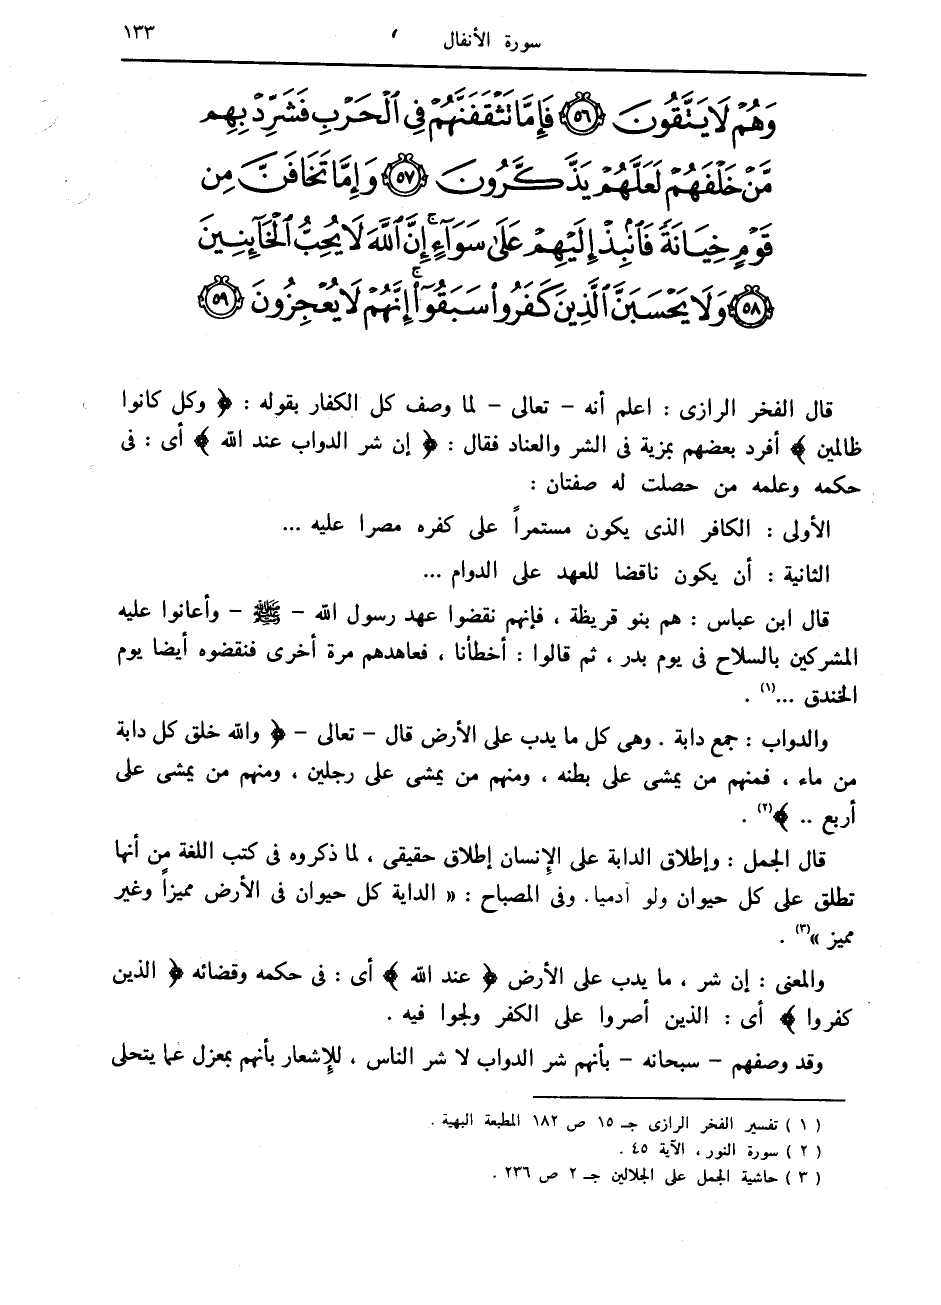 سورة الأنفال ١٣٣
وَهُمْ لَا يَتَّقُونَ ﴿٥٦﴾ فَإِمَّا تَثْقَفَنَّهُمْ فِي ٱلْحَرْبِ فَشَرِّدْ بِهِم
مَّنْ خَلْفَهُمْ لَعَلَّهُمْ يَذَّكَّرُونَ ﴿٥٧﴾ وَإِمَّا تَخَافَنَّ مِن
قَوْمٍ خِيَانَةً فَٱنۢبِذْ إِلَيْهِمْ عَلَىٰ سَوَآءٍ ۚ إِنَّ ٱللَّهَ لَا يُحِبُّ ٱلْخَآئِنِينَ
﴿٥٨﴾ وَلَا يَحْسَبَنَّ ٱلَّذِينَ كَفَرُوا۟ سَبَقُوٓا۟ ۚ إِنَّهُمْ لَا يُعْجِزُونَ ﴿٥٩﴾
قال الفخر الرازى : اعلم أنه – تعالى – لما وصف كل الكفار بقوله : ﴿ وكل كانوا
ظالمين ﴾ أفرد بعضهم بمزية فى الشر والعناد فقال : ﴿ إن شر الدواب عند الله ﴾ أى : فى
حكمه وعلمه من حصلت له صفتان :
الأولى : الكافر الذى يكون مستمراً على كفره مصرا عليه ...
الثانية : أن يكون ناقضا للعهد على الدوام ...
قال ابن عباس : هم بنو قريظة ، فإنهم نقضوا عهد رسول الله – ﷺ – وأعانوا عليه
المشركين بالسلاح فى يوم بدر ، ثم قالوا : أخطأنا ، فعاهدهم مرة أخرى فنقضوه أيضا يوم
الخندق ...(١) .
والدواب : جمع دابة . وهى كل ما يدب على الأرض قال – تعالى – ﴿ والله خلق كل دابة
من ماء ، فمنهم من يمشى على بطنه ، ومنهم من يمشى على رجلين ، ومنهم من يمشى على
أربع .. ﴾(٢) .
قال الجمل : وإطلاق الدابة على الإنسان إطلاق حقيقى ، لما ذكروه فى كتب اللغة من أنها
تطلق على كل حيوان ولو آدميا. وفى المصباح : « الداية كل حيوان فى الأرض مميزاً وغير
مميز »(٣) .
والمعنى : إن شر ، ما يدب على الأرض ﴿ عند الله ﴾ أى : فى حكمه وقضائه ﴿ الذين
كفروا ﴾ أى : الذين أصروا على الكفر ولجوا فيه .
وقد وصفهم – سبحانه – بأنهم شر الدواب لا شر الناس ، للإشعار بأنهم بمعزل عما يتحلى
( ١ ) تفسير الفخر الرازى جـ ١٥ ص ١٨٢ المطبعة البهية .
( ٢ ) سورة النور ، الآية ٤٥ .
( ٣ ) حاشية الجمل على الجلالين جـ ٢ ص ٢٣٦ .